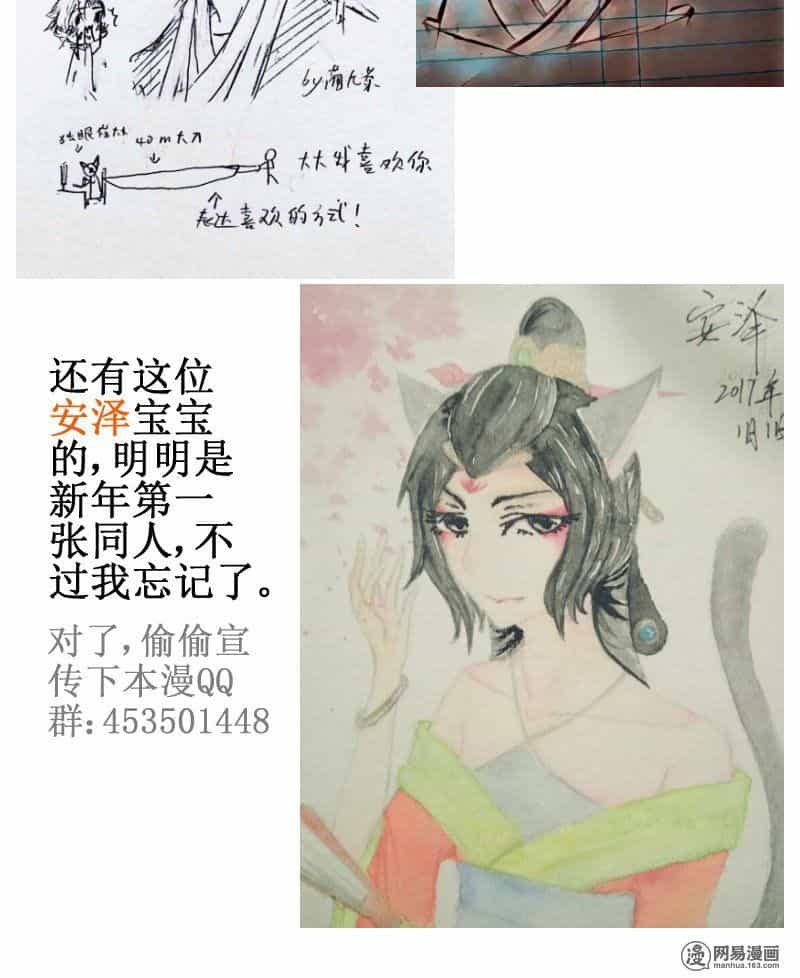 by萌九条
独眼怪大大
40m大刀
大大我喜欢你
表达喜欢的方式!
安泽
2017年
1月1日
还有这位
安泽宝宝
的,明明是
新年第一
张同人,不
过我忘记了。
对了,偷偷宣
传下本漫QQ
群:453501448
漫 网易漫画
manhua.163.com